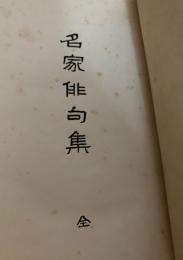 名家俳句集
全